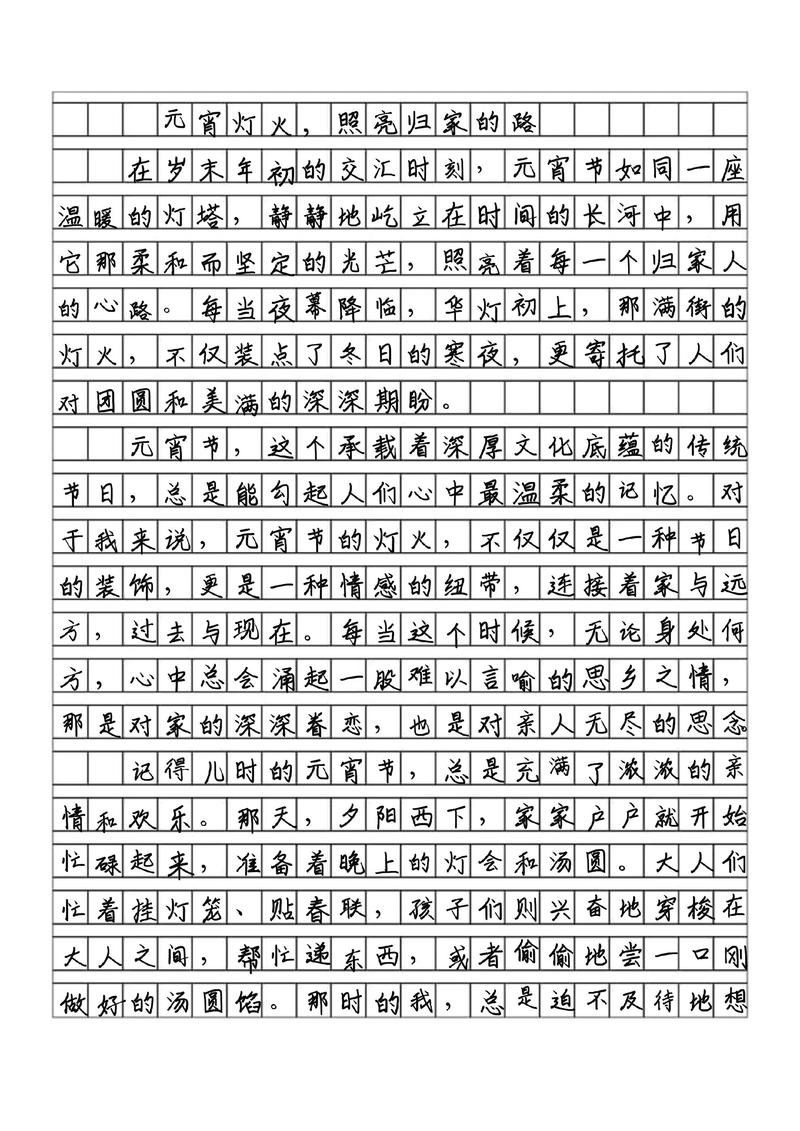 元宵灯火，照亮归家的路
在岁末年初的交汇时刻，元宵节如同一座
温暖的灯塔，静静地屹立在时间的长河中，用
它那柔和而坚定的光芒，照亮着每一个归家人
的心路。每当夜幕降临，华灯初上，那满街的
灯火，不仅装点了冬日的寒夜，更寄托了人们
对团圆和美满的深深期盼。
元宵节，这个承载着深厚文化底蕴的传统
节日，总是能勾起人们心中最温柔的记忆。对
于我来说，元宵节的灯火，不仅仅是一种节日
的装饰，更是一种情感的纽带，连接着家与远
方，过去与现在。每当这个时候，无论身处何
方，心中总会涌起一股难以言喻的思乡之情，
那是对家的深深眷恋，也是对亲人无尽的思念。
记得儿时的元宵节，总是充满了浓浓的亲
情和欢乐。那天，夕阳西下，家家户户就开始
忙碌起来，准备着晚上的灯会和汤圆。大人们
忙着挂灯笼、贴春联，孩子们则兴奋地穿梭在
大人之间，帮忙递东西，或者偷偷地尝一口刚
做好的汤圆馅。那时的我，总是迫不及待地想